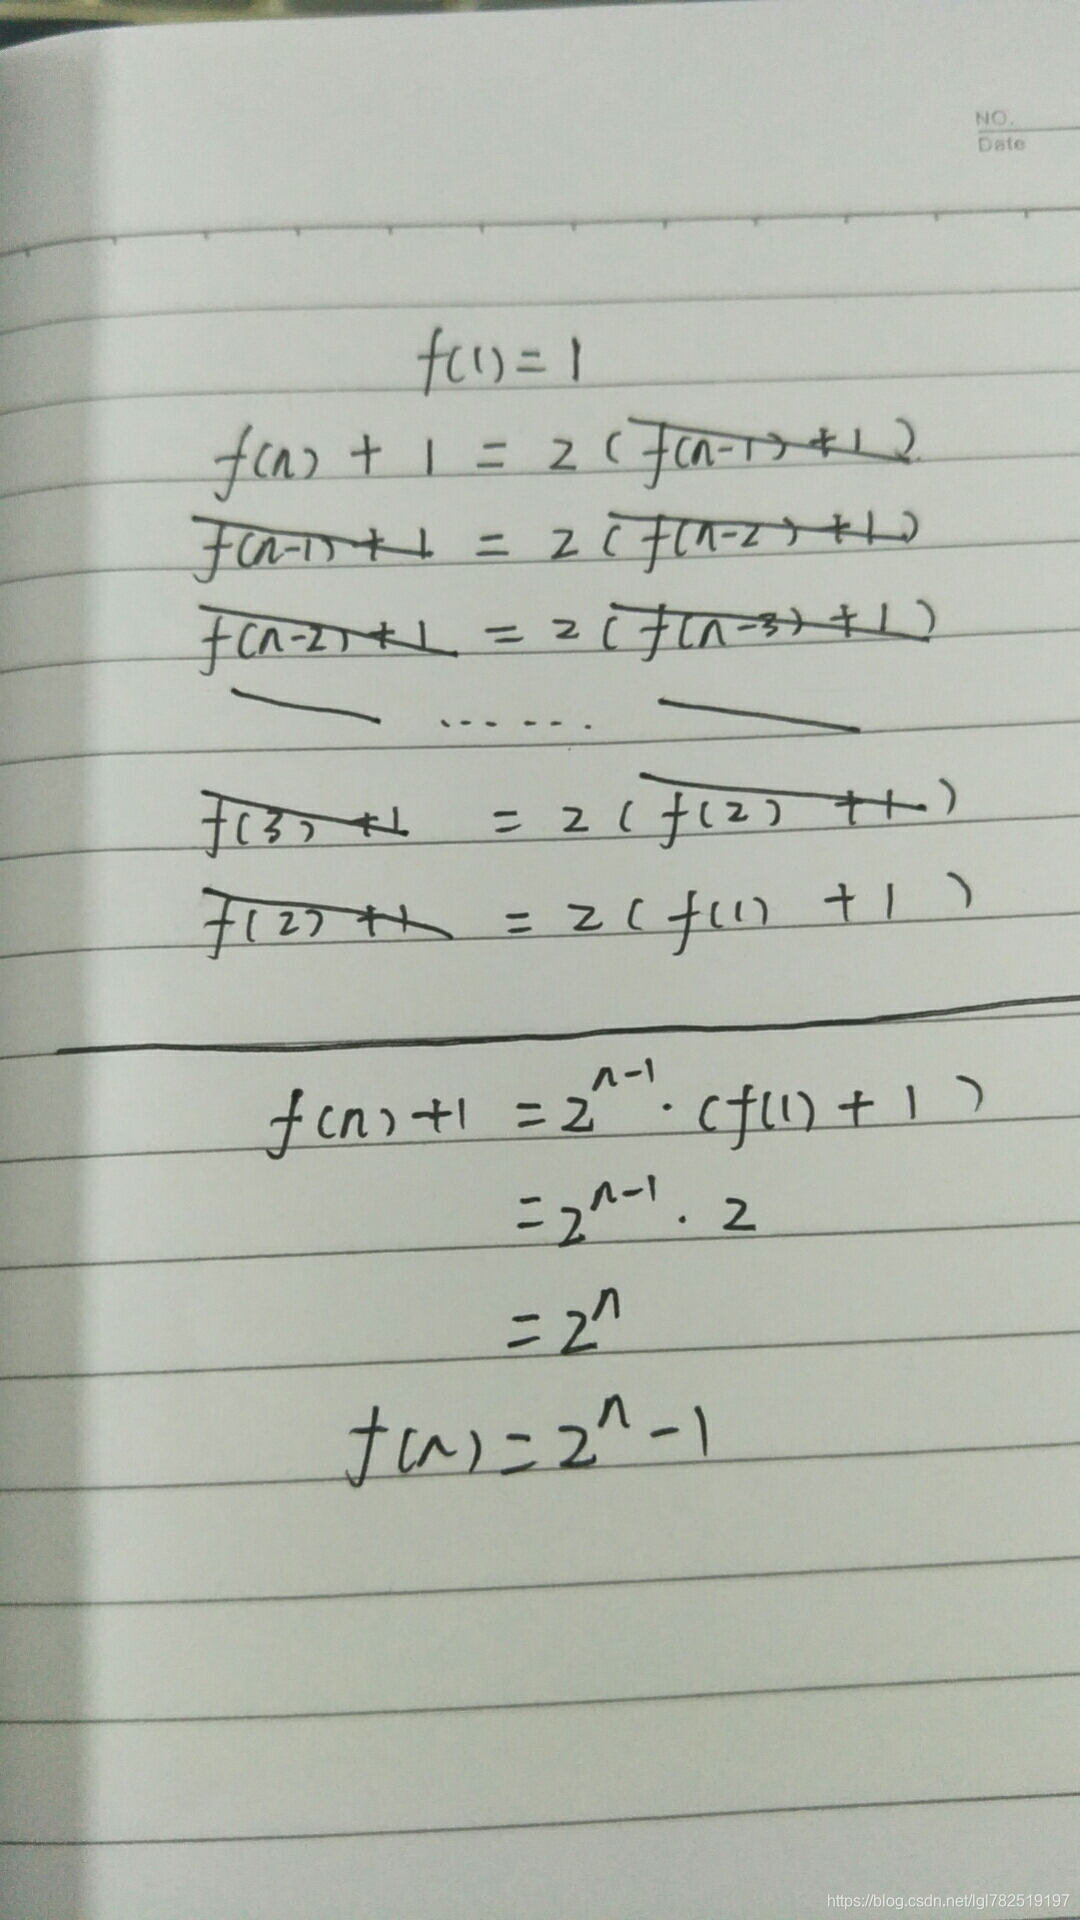 NO.
Date
f(1) = 1
f(n) + 1 = 2 ( f(n-1) + 1 )
f(n-1) + 1 = 2 ( f(n-2) + 1 )
f(n-2) + 1 = 2 ( f(n-3) + 1 )
.......
f(3) + 1 = 2 ( f(2) + 1 )
f(2) + 1 = 2 ( f(1) + 1 )
f(n) + 1 = 2^{n-1} · ( f(1) + 1 )
= 2^{n-1} · 2
= 2^n
f(n) = 2^n - 1
https://blog.csdn.net/lgl782519197